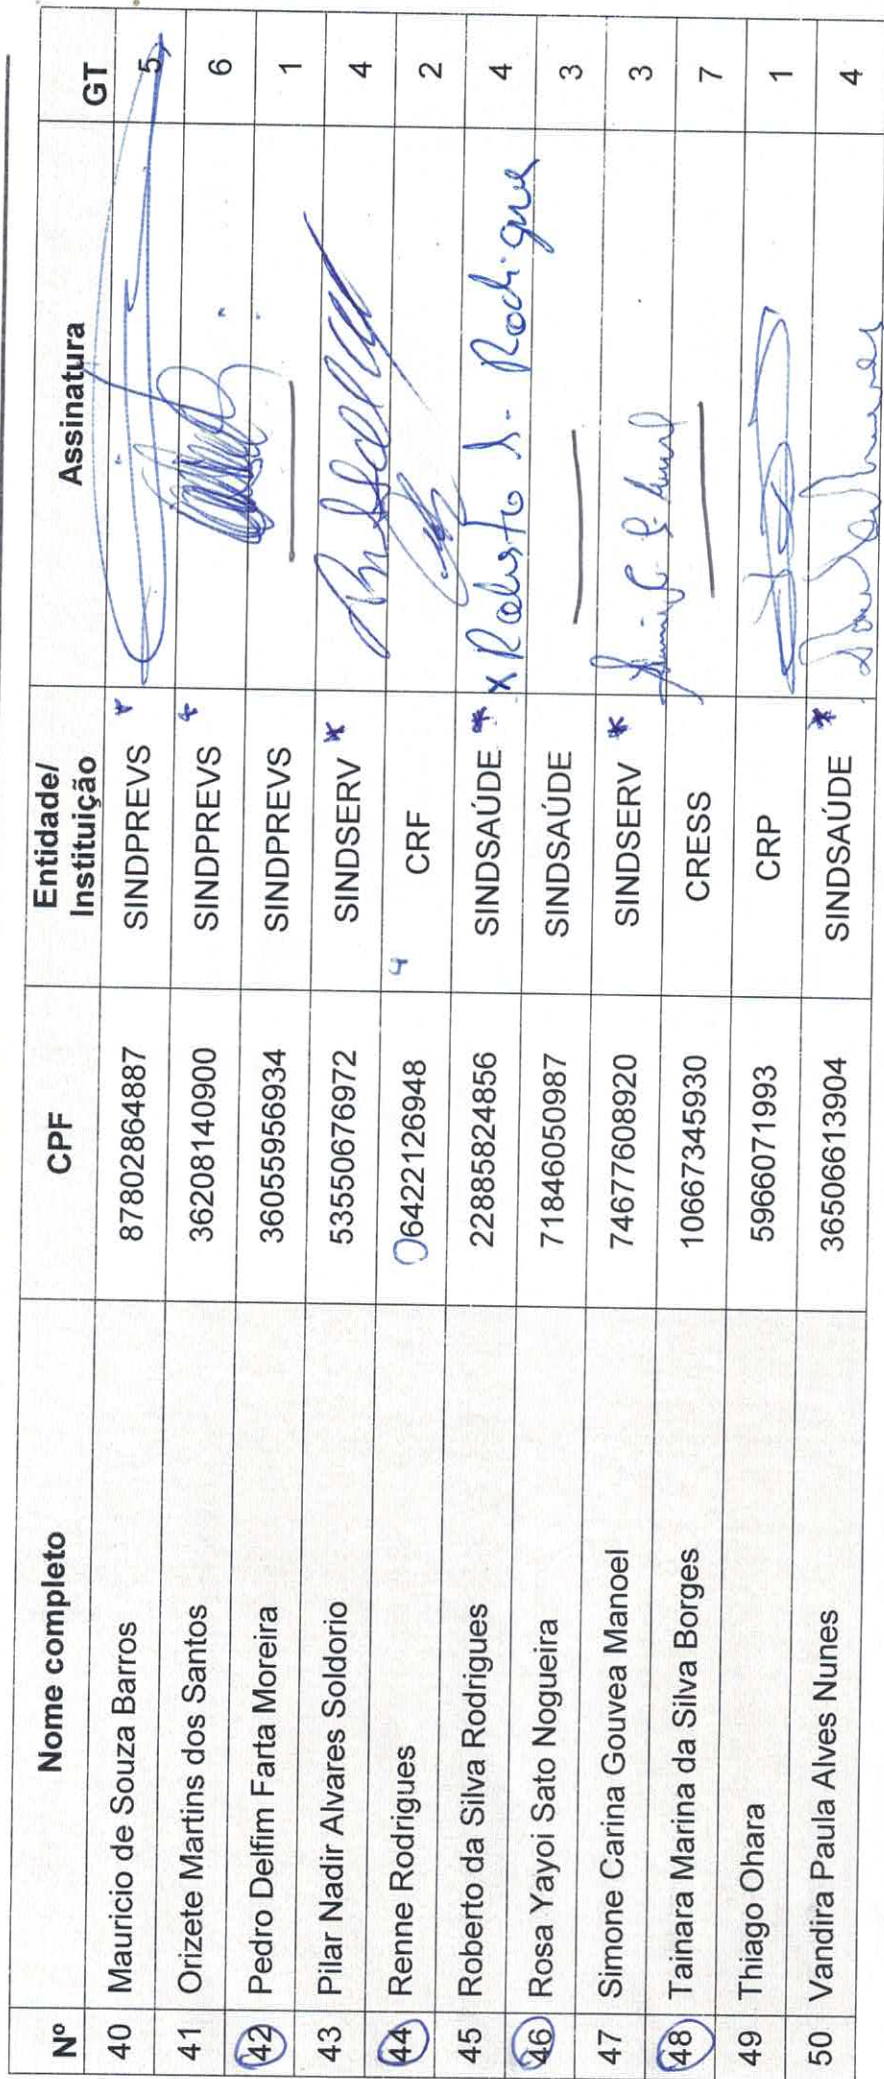 Nº Nome completo CPF Entidade/ Instituição Assinatura GT
40 Mauricio de Souza Barros 87802864887 SINDPREVS * 5
41 Orizete Martins dos Santos 36208140900 SINDPREVS * 6
42 Pedro Delfim Farta Moreira 36055956934 SINDPREVS 1
43 Pilar Nadir Alvares Soldorio 53550676972 SINDSERV * 4
44 Renne Rodrigues 06422126948 CRF 2
45 Roberto da Silva Rodrigues 22885824856 SINDSAÚDE * x Roberto S. Rodrigue 4
46 Rosa Yayoi Sato Nogueira 71846050987 SINDSAÚDE 3
47 Simone Carina Gouvea Manoel 74677608920 SINDSERV * 3
48 Tainara Marina da Silva Borges 10667345930 CRESS 7
49 Thiago Ohara 5966071993 CRP 1
50 Vandira Paula Alves Nunes 36506613904 SINDSAÚDE * 4